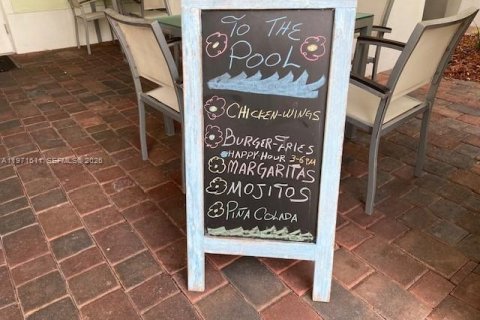 To THE
POOL
CHICKEN-WINGS
BURGER-FRIES
HAPPY HOUR 3-6PM
MARGARITAS
MOJITOS
PINA COLADA
© 2026